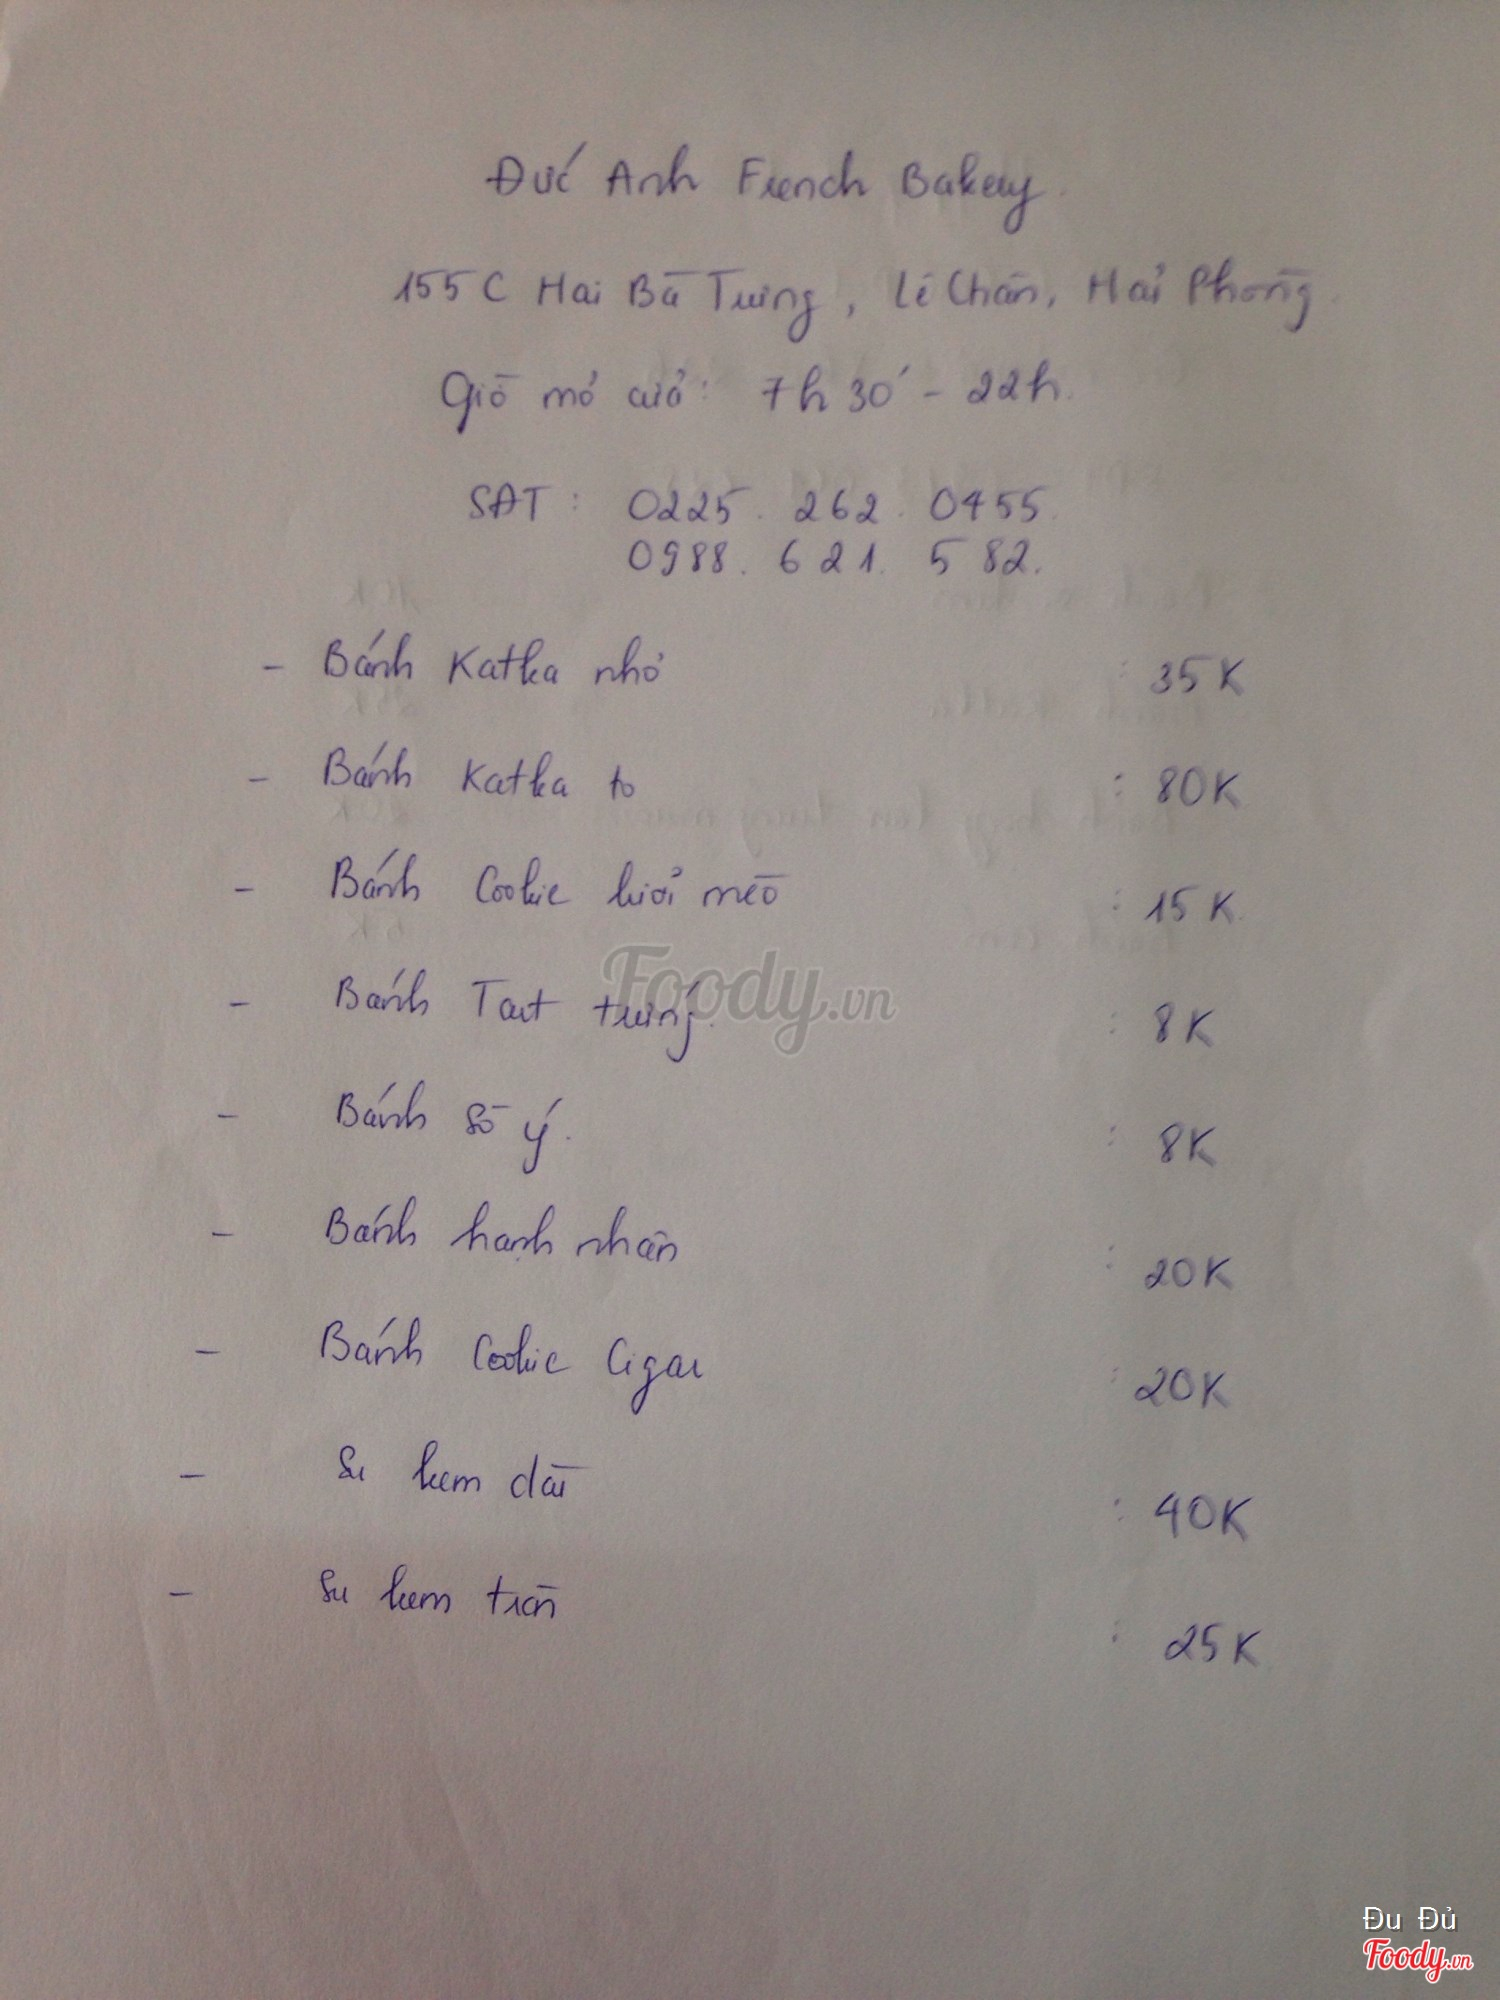 Đức Anh French Bakery.
155C Hai Bà Trưng, Lê Chân, Hải Phòng.
Giờ mở cửa: 7h30' - 22h.
SĐT: 0225. 262. 0455.
0988. 621. 582.
- Bánh Katka nhỏ : 35K
- Bánh Katka to : 80K
- Bánh Cookie lưỡi mèo : 15K
- Bánh Tart trứng. : 8K
- Bánh sò ý. : 8K
- Bánh hạnh nhân : 20K
- Bánh Cookie Cigar : 20K
- Su kem dài : 40K
- Su kem tròn : 25K
Foody.vn
Đu Đủ
Foody.vn